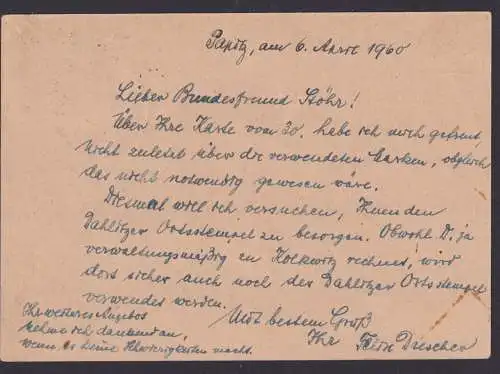 Papitz, am 6. April 1960
Lieber Bundesfreund Stöhr!
Über Ihre Karte vom 30. habe ich mich gefreut,
nicht zuletzt über die verwendeten Marken, obgleich
das nicht notwendig gewesen wäre.
Diesmal will ich versuchen, Ihnen den
Dahlitzer Ortsstempel zu besorgen. Obwohl D. ja
verwaltungsmäßig zu Kolkwitz rechnet, wird
dort sicher auch noch der Dahlitzer Ortsstempel
verwendet werden.
Ihr weiteres Angebot
nehme ich dankend an,
wenn es keine Schwierigkeiten macht.
Mit bestem Gruß
Ihr Drescher